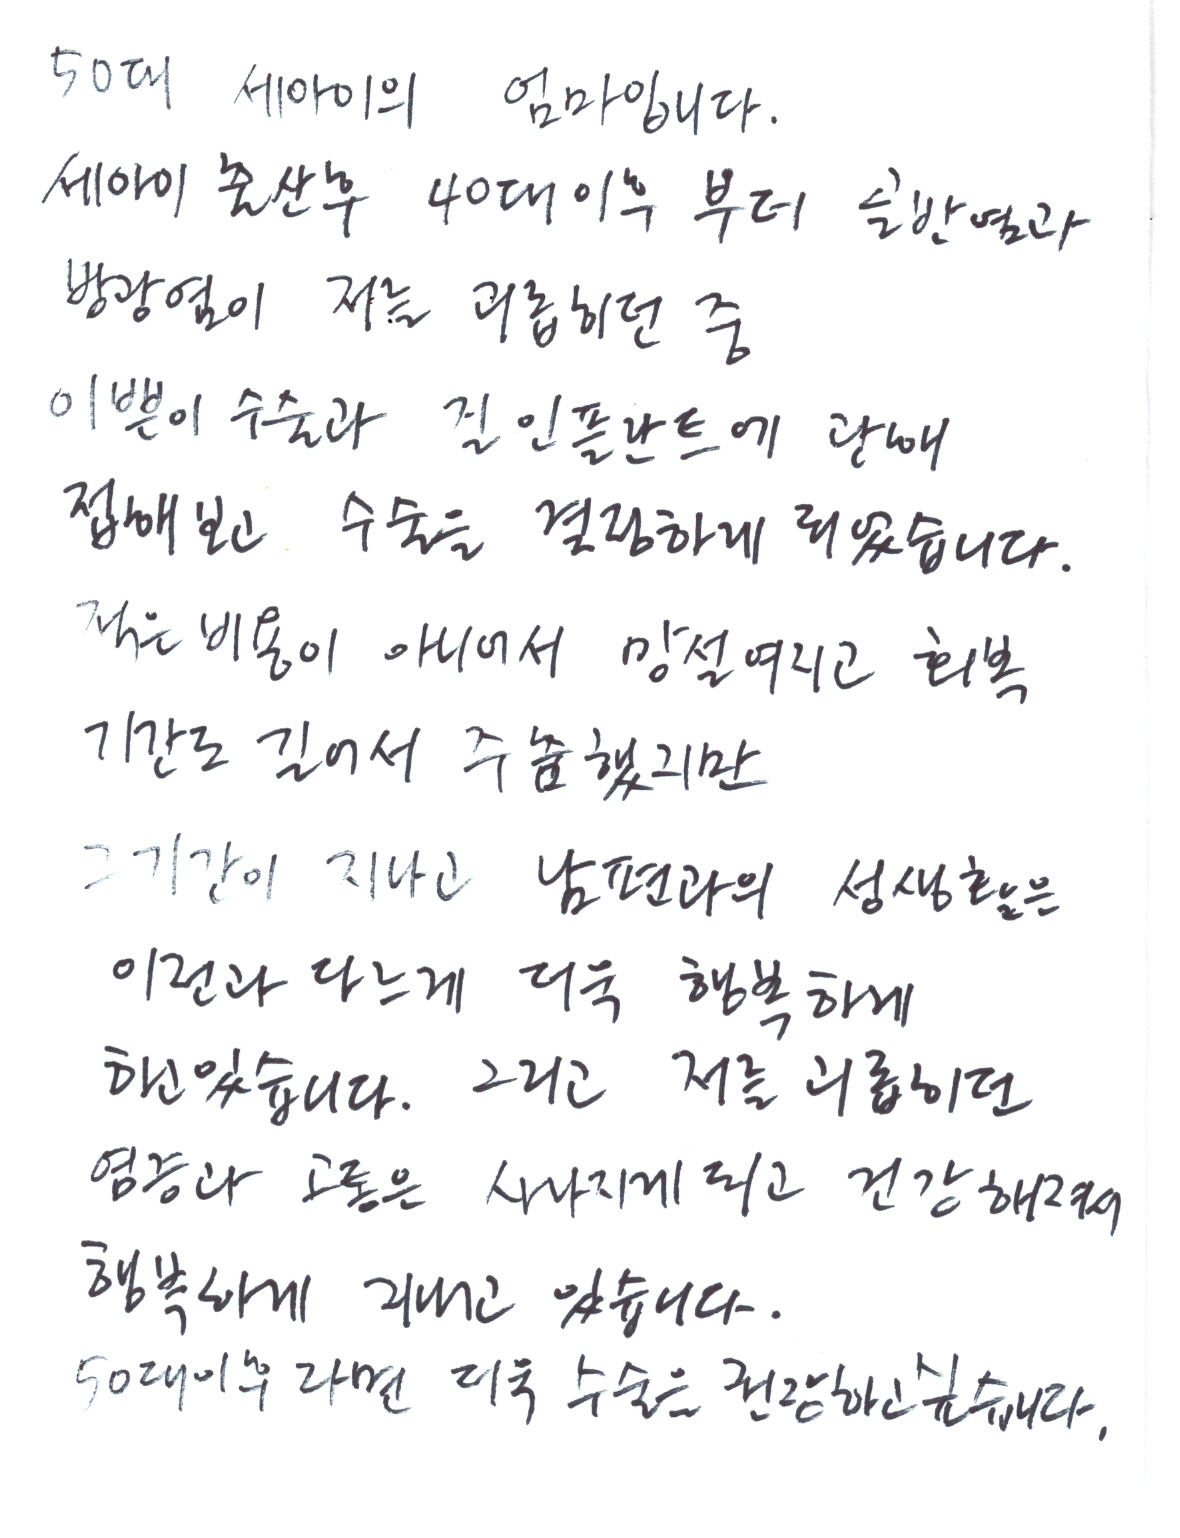 50대 세아이의 엄마입니다.
세아이 출산후 40대이후 부터 골반염과
방광염이 저를 괴롭히던 중
이쁜이 수술과 질 인플란트에 관해
접해보고 수술을 결정하게 되었습니다.
적은 비용이 아니어서 망설여지고 회복
기간도 길어서 주춤했지만
그기간이 지나고 남편과의 성생활은
이전과 다르게 더욱 행복하게
하고있습니다. 그리고 저를 괴롭히던
염증과 고통은 사라지게 되고 건강해져서
행복하게 지내고 있습니다.
50대이후라면 더욱 수술은 권장하고싶습니다.